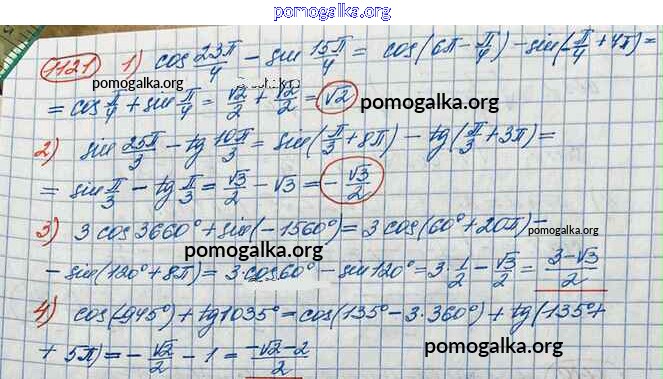 pomogalka.org
1121 1) cos 23π/4 − sin 15π/4 = cos(6π − π/4) − sin(−π/4 + 4π) =
pomogalka.org
= cos π/4 + sin π/4 = √2/2 + √2/2 = √2 pomogalka.org
2) sin 25π/3 − tg 10π/3 = sin(π/3 + 8π) − tg(π/3 + 3π) =
= sin π/3 − tg π/3 = √3/2 − √3 = −√3/2
3) 3 cos 3660° + sin(−1560°) = 3 cos(60° + 20π) −
pomogalka.org
pomogalka.org
− sin(120° + 8π) = 3·cos 60° − sin 120° = 3·1/2 − √3/2 = (3−√3)/2
4) cos(−945°) + tg 1035° = cos(135° − 3·360°) + tg(135° +
+ 5π) = −√2/2 − 1 = (−√2−2)/2
pomogalka.org